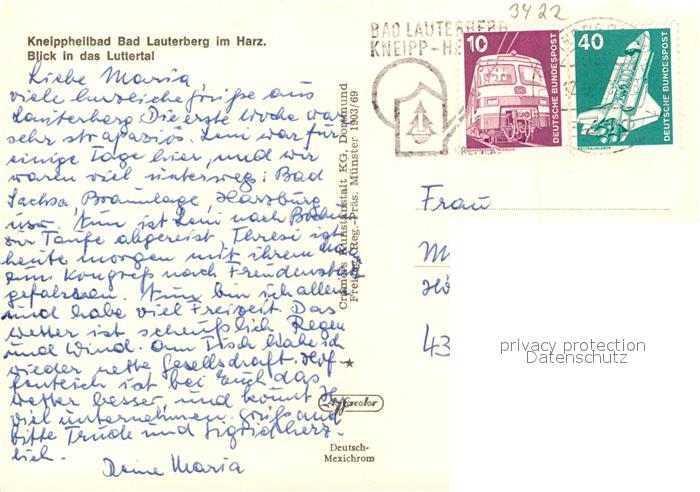 3422
Kneippheilbad Bad Lauterberg im Harz.
Blick in das Luttertal
BAD LAUTERBERG
KNEIPP-HE
10
DEUTSCHE BUNDESPOST
40
DEUTSCHE BUNDESPOST
Liebe Maria
viele herzliche Grüße aus
Lauterberg. Die erste Woche war
sehr strapaziös. Leni war für
einige Tage hier, und wir
waren viel unterwegs: Bad
Sachsa Braunlage, Harzburg
usw. Nun ist Leni nach
zur Taufe abgereist, Theresi ist
heute morgen mit ihrem
zum Kongreß nach Freudenstadt
gefahren. Nun bin ich allein
und habe viel Freizeit. Das
Wetter ist scheußlich Regen
und Wind. Am Tisch habe ich
wieder nette Gesellschaft. Hof-
fentlich ist bei Euch das
Wetter besser und könnt Ihr
viel unternehmen. Grüße auch
bitte Trude und Sigrid herz-
lich.
Deine Maria
Cramers Kunstanstalt KG, Dortmund
Freigeg. Reg.-Präs. Münster 1903/69
Agfacolor
Deutsch-
Mexichrom
Frau
M
43
privacy protection
Datenschutz